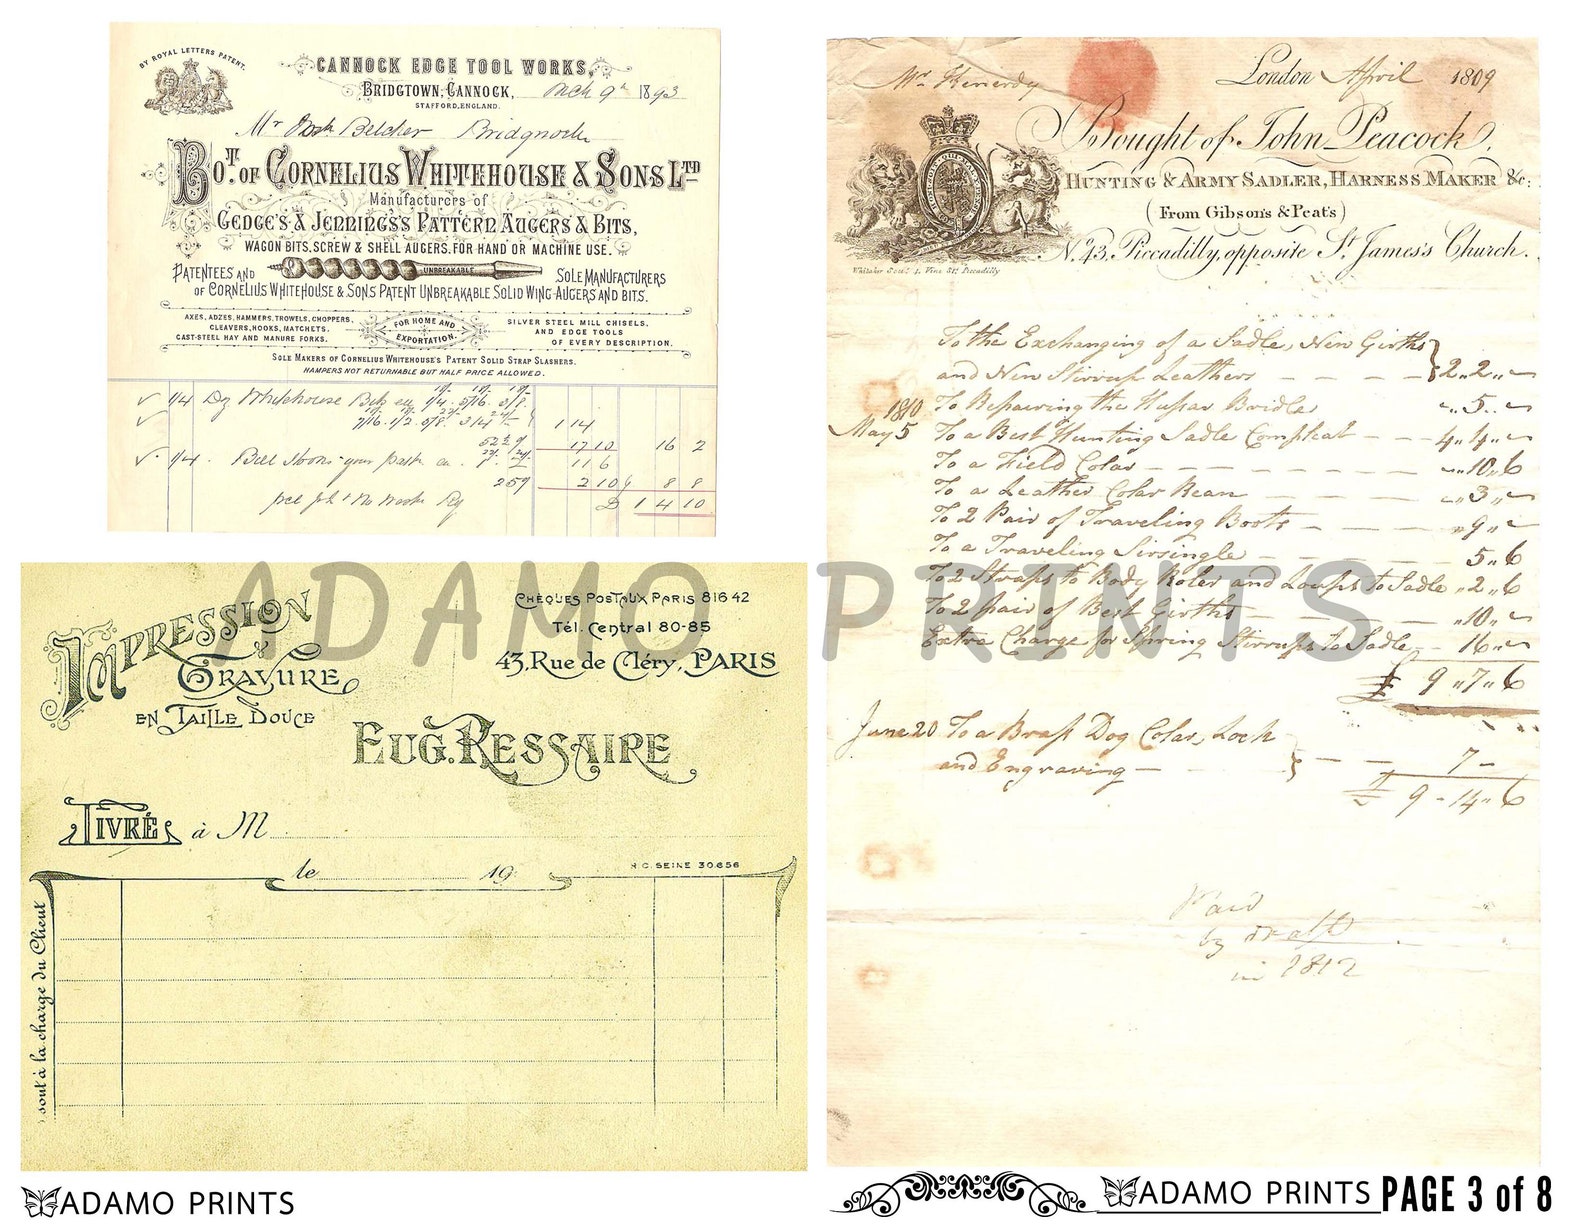 BY ROYAL LETTERS PATENT.
CANNOCK EDGE TOOL WORKS,
BRIDGTOWN, CANNOCK, 9th 1893
STAFFORD, ENGLAND.
Mr Belcher Bridgnorth
BOT. OF CORNELIUS WHITEHOUSE & SONS LTD
Manufacturers of
GEDGE'S & JENNINGS'S PATTERN AUGERS & BITS,
WAGON BITS, SCREW & SHELL AUGERS, FOR HAND OR MACHINE USE.
UNBREAKABLE
PATENTEES AND SOLE MANUFACTURERS
OF CORNELIUS WHITEHOUSE & SONS PATENT UNBREAKABLE SOLID WING AUGERS AND BITS.
AXES, ADZES, HAMMERS, TROWELS, CHOPPERS,
CLEAVERS, HOOKS, MATCHETS.
CAST-STEEL HAY AND MANURE FORKS.
FOR HOME AND
EXPORTATION.
SILVER STEEL MILL CHISELS,
AND EDGE TOOLS
OF EVERY DESCRIPTION.
SOLE MAKERS OF CORNELIUS WHITEHOUSE'S PATENT SOLID STRAP SLASHERS.
HAMPERS NOT RETURNABLE BUT HALF PRICE ALLOWED.
1/4 Dz Whitehouse Bits 1/4 5/16 3/8
7/16 1/2 5/8 3/4 1 14
17 10 16 2
1/4 Bill Hooks your patt 11 6
2 10 8 8
1 4 10
IMPRESSION
&
GRAVURE
EN TAILLE DOUCE
CHEQUES POSTAUX PARIS 816 42
Tél. Central 80-85
43, Rue de Cléry, PARIS
EUG. RESSAIRE
LIVRÉ à M
le 19
R.C. SEINE 30.656
sont à la charge du Client
Mr London April 1809
Bought of John Peacock,
HUNTING & ARMY SADLER, HARNESS MAKER &c:
(From Gibson's & Peat's)
N. 43, Piccadilly, opposite St. James's Church.
Whitaker Sculp. 1, Vine St. Piccadilly
To the Exchanging of a Sadle, New Girths
and New Stirrup Leathers 2 " 2 "
1810 To Repairing the Hussar Bridle " 5 "
May 5 To a Best Hunting Sadle Compleat 4 " 4 "
To a Field Colar " 10 " 6
To a Leather Colar Rean " 3 "
To 2 Pair of Traveling Boots " 9 "
To a Traveling Sirsingle 5 " 6
To 2 Straps to Body Roler and Loups to Sadle " 2 " 6
To 2 pair of Best Girths " 10 "
Extra Charge for Spring Stirrups to Sadle 16 "
£ 9 " 7 " 6
June 20 To a Brass Dog Colar, Lock
and Engraving 7 -
£ 9 - 14 " 6
Paid
by draft
in 1812
ADAMO PRINTS
ADAMO PRINTS
ADAMO PRINTS PAGE 3 of 8